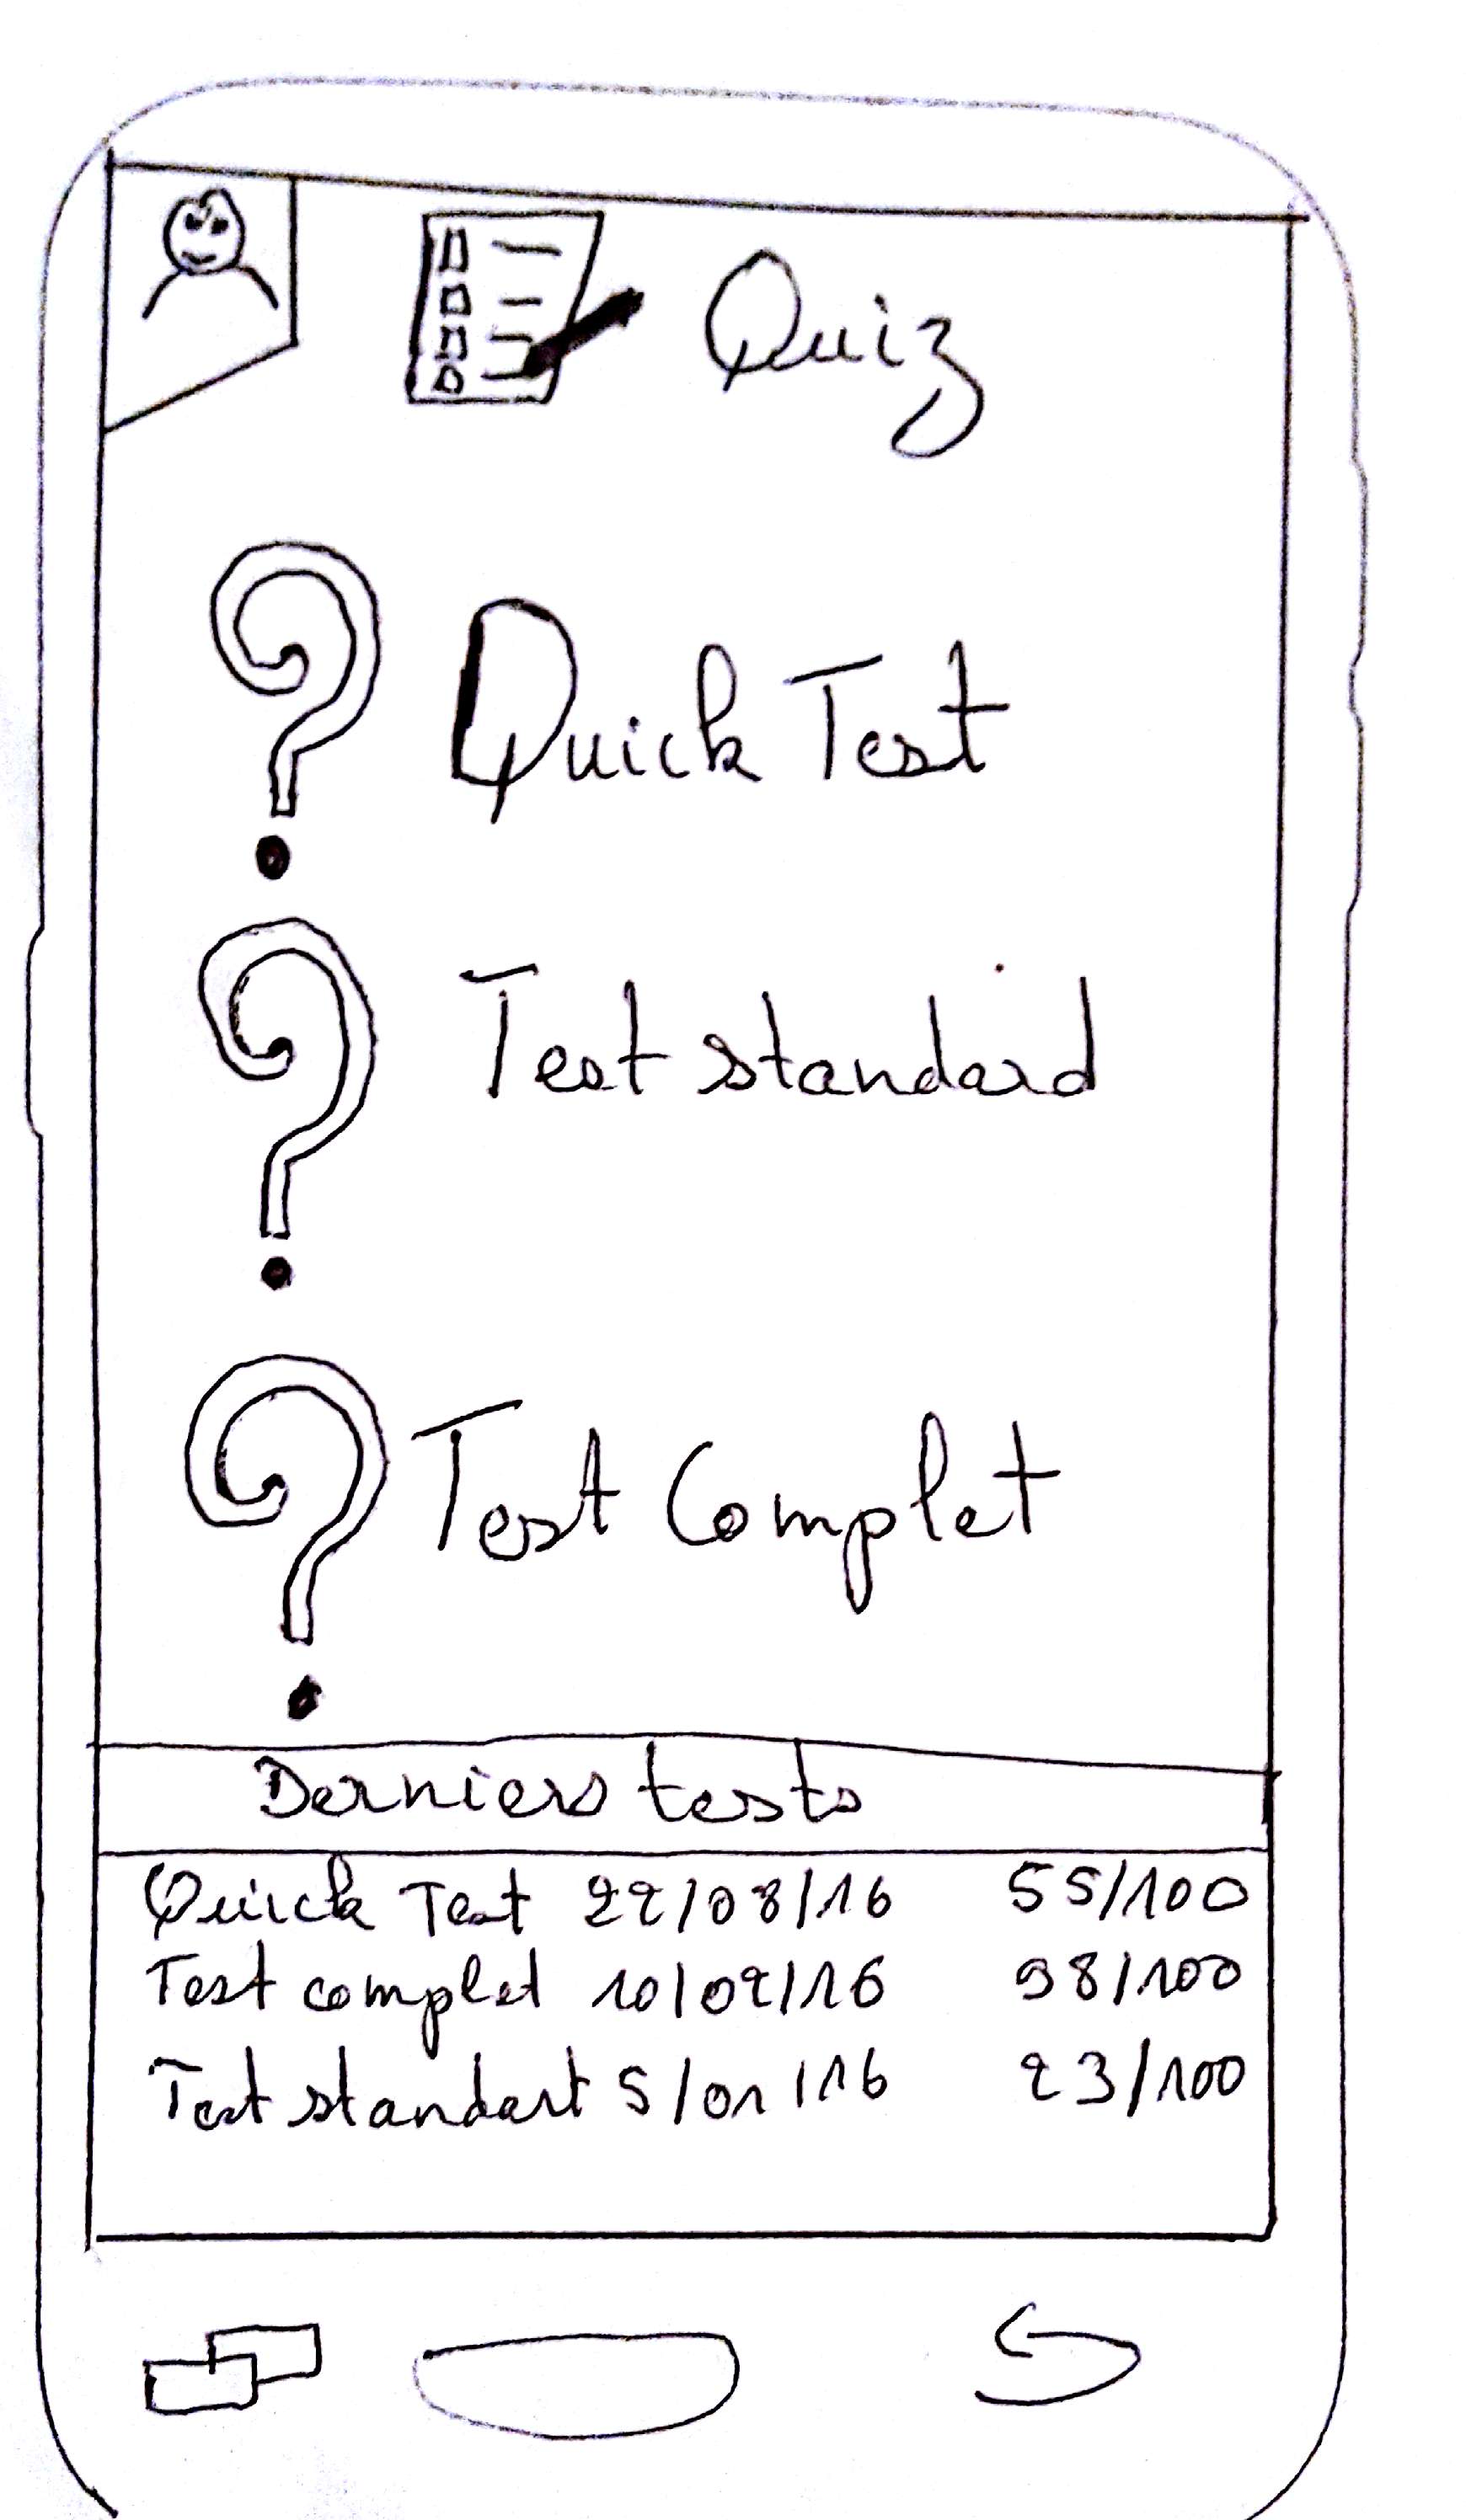 Quiz
Quick Test
Test standard
Test Complet
Derniers tests
Quick Test 22/08/16 55/100
Test complet 10/02/16 98/100
Test standart 5/01/16 23/100